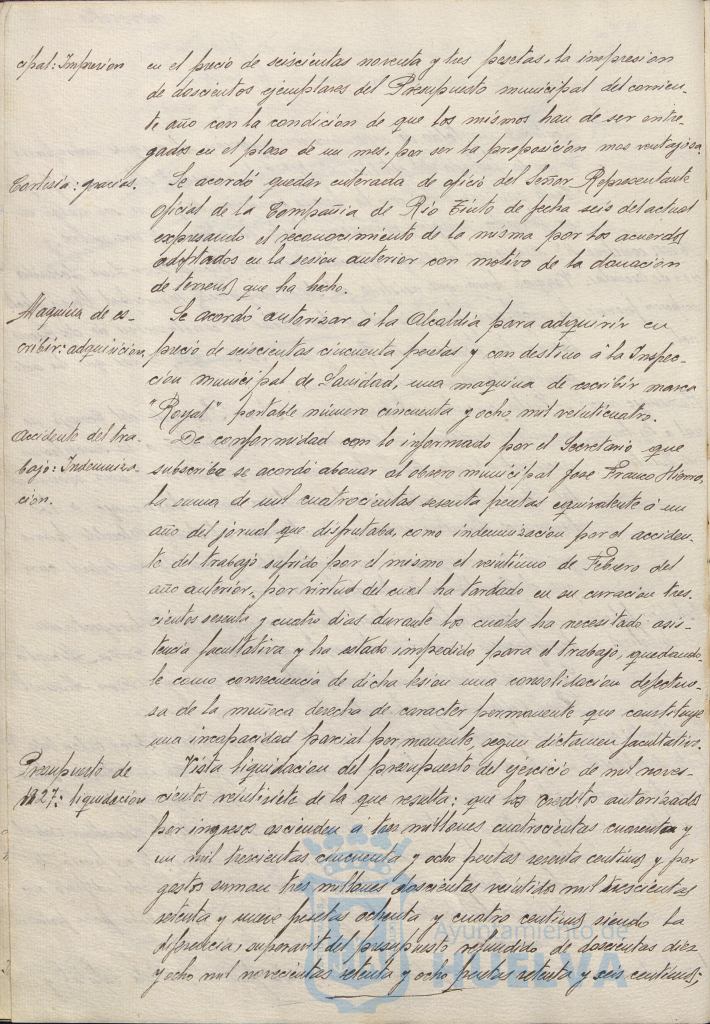 cipal: Impresion
en el precio de seiscientas noventa y tres pesetas, la impresion
de doscientos ejemplares del Presupuesto municipal del corrien-
te año con la condición de que los mismos han de ser entre-
gados en el plazo de un mes, por ser la proposición mas ventajosa.
Cortesia: gracias.
Se acordó quedar enterada de oficio del Señor Representante
oficial de la Compañia de Rio Tinto de fecha seis del actual
expresando el reconocimiento de la misma por los acuerdos
adoptados en la sesion anterior con motivo de la donación
de terrenos que ha hecho.
Maquina de es-
cribir: adquisicion,
Se acordó autorizar á la Alcaldia para adquirir en
precio de seiscientas cincuenta pesetas y con destino á la Inspec-
cion municipal de Sanidad, una maquina de escribir marca
"Royal", portable número cincuenta y ocho mil veinticuatro.
Accidente del tra-
bajo: Indemniza-
cion.
De conformidad con lo informado por el Secretario que
subscribe se acordó abonar al obrero municipal José Franco Hierro,
la suma de mil cuatrocientas sesenta pesetas equivalente á un
año del jornal que disfrutaba, como indemnización por el acciden-
te del trabajo sufrido por el mismo el veintiuno de Febrero del
año anterior, por virtud del cual ha tardado en su curación tres-
cientos sesenta y cuatro dias durante los cuales ha necesitado asis-
tencia facultativa y ha estado impedido para el trabajo, quedando-
le como consecuencia de dicha lesion una consolidación defectuo-
sa de la muñeca derecha de caracter permanente que constituye
una incapacidad parcial permanente, segun dictamen facultativo.
Presupuesto de
1927: liquidación
Vista liquidacion del presupuesto del ejercicio de mil nove-
cientos veintisiete de la que resulta: que los creditos autorizados
por ingresos ascienden á tres millones cuatrocientas cuarenta y
un mil trescientas cincuenta y ocho pesetas sesenta centimos y por
gastos suman tres millones doscientas veintidos mil trescientas
setenta y nueve pesetas ochenta y cuatro centimos siendo la
diferencia, superavit del presupuesto refundido de doscientas diez
y ocho mil novecientas setenta y ocho pesetas setenta y seis centimos;
Ayuntamiento de
HUELVA